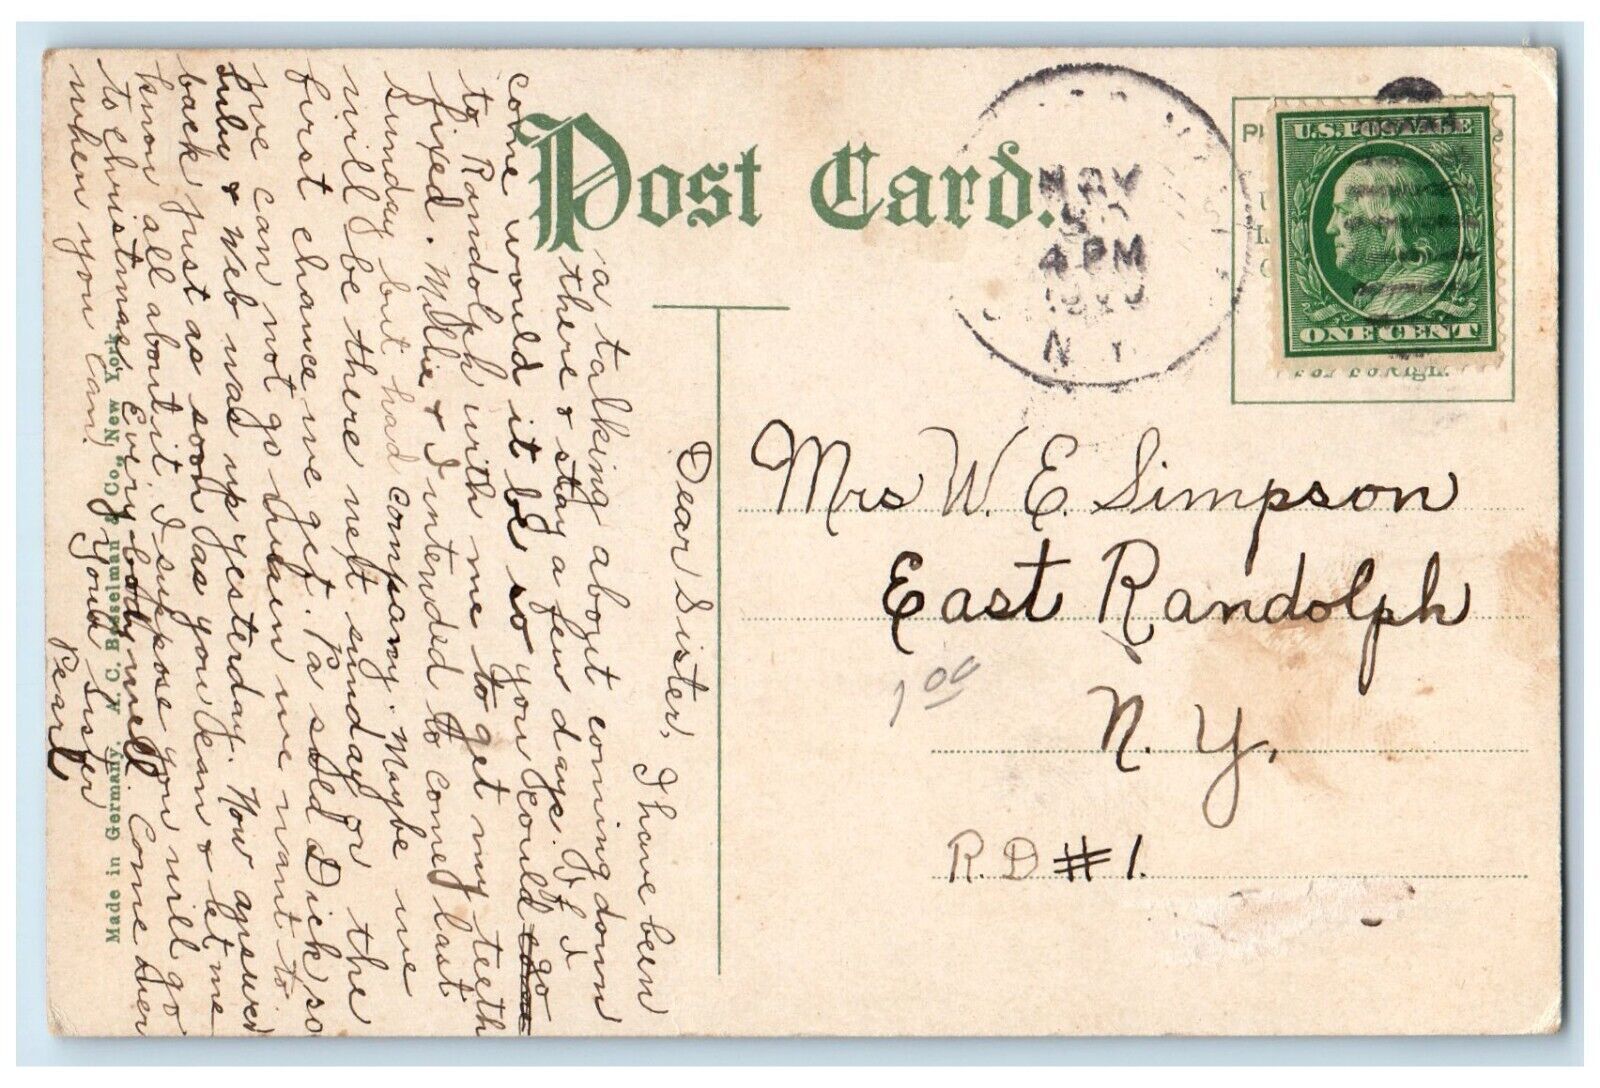 Post Card.
U.S. POSTAGE
ONE CENT
NOV
4 PM
N.Y.
Mrs W. E. Simpson
East Randolph
N. Y.
R. D #1.
1 00
Dear Sister,
I have been
a talking about coming down
there & stay a few days. If I
come would it be so you could come go
to Randolph with me to get my teeth
fixed. Millie & I intended to come last
Sunday but had company. Maybe we
will be there next sunday or the
first chance we get. Pa sold Dick so
we can not go when we want to.
Lulu & Web was up yesterday. Now answer
back just as soon as you can & let me
know all about it. I suppose you will go
to christmas. Every body well. Come over
when you can.
Your Sister
Pearl
Made in Germany. A. C. Bosselman & Co., New York